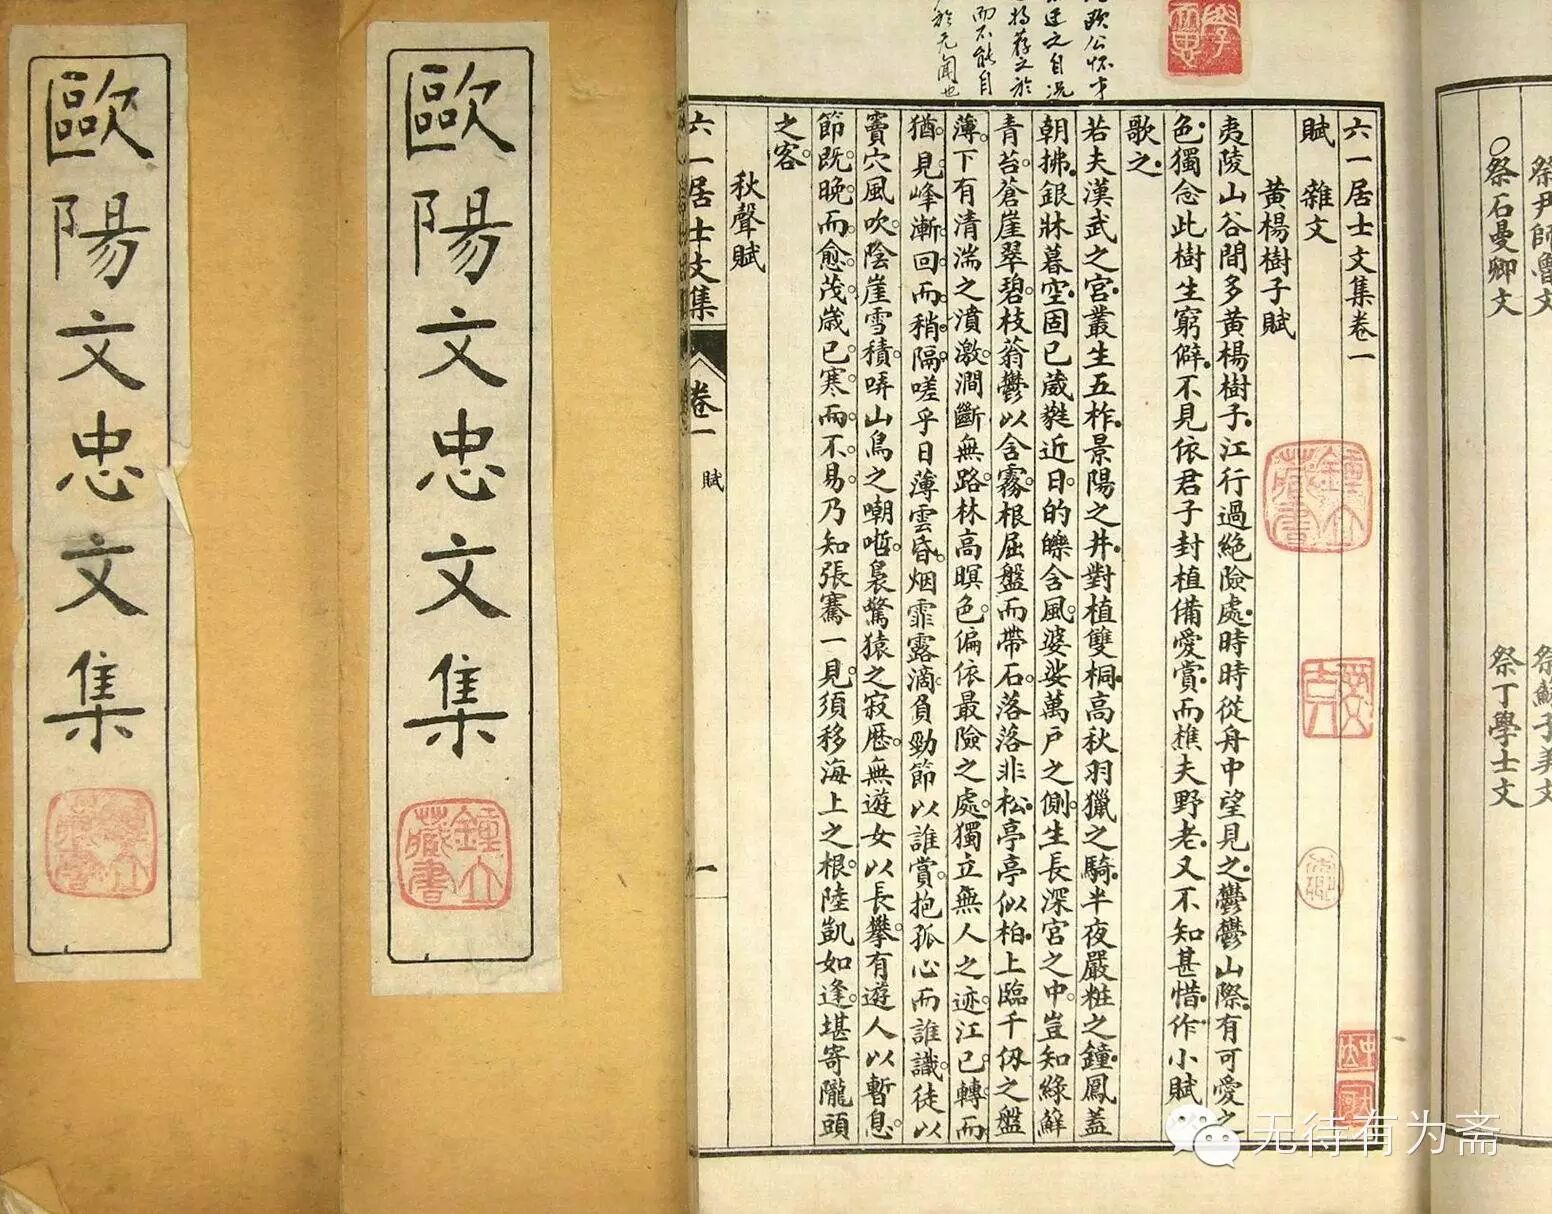 歐陽文忠文集
歐陽文忠文集
鍾山藏書
六一居士文集卷一
賦 雜文
黃楊樹子賦
夷陵山谷間多黃楊樹子江行過絕險處時時從舟中望見之鬱鬱山際有可愛之
色獨念此樹生窮僻不見依君子封植備愛賞而樵夫野老又不知甚惜作小賦
歌之
若夫漢武之宮叢生五柞景陽之井對植雙桐高秋羽獵之騎半夜嚴粧之鐘鳳蓋
朝拂銀牀暮空固已葳蕤近日的皪含風婆娑萬戶之側生長深宮之中豈知綠蘚
青苔蒼崖翠碧枝蓊鬱以含霧根屈盤而帶石落落非松亭亭似柏上臨千仞之盤
薄下有清湍之濆激澗斷無路林高暝色偏依最險之處獨立無人之迹江已轉而
猶見峰漸回而稍隔嗟乎日薄雲昏烟霏露滴負勁節以誰賞抱孤心而誰識徒以
竇穴風吹陰崖雪積哢山鳥之嘲哳裊驚猿之寂歷無遊女以長攀有遊人以暫息
節既晚而愈茂歲已寒而不易乃知張騫一見須移海上之根陸凱如逢堪寄隴頭
之客
秋聲賦
六一居士文集 卷一 賦 一
公怀才
之自况
將荐之於
而不能自
於无聞也
祭尹師魯文 祭蘇子美文
祭石曼卿文 祭丁學士文
无待有为斋